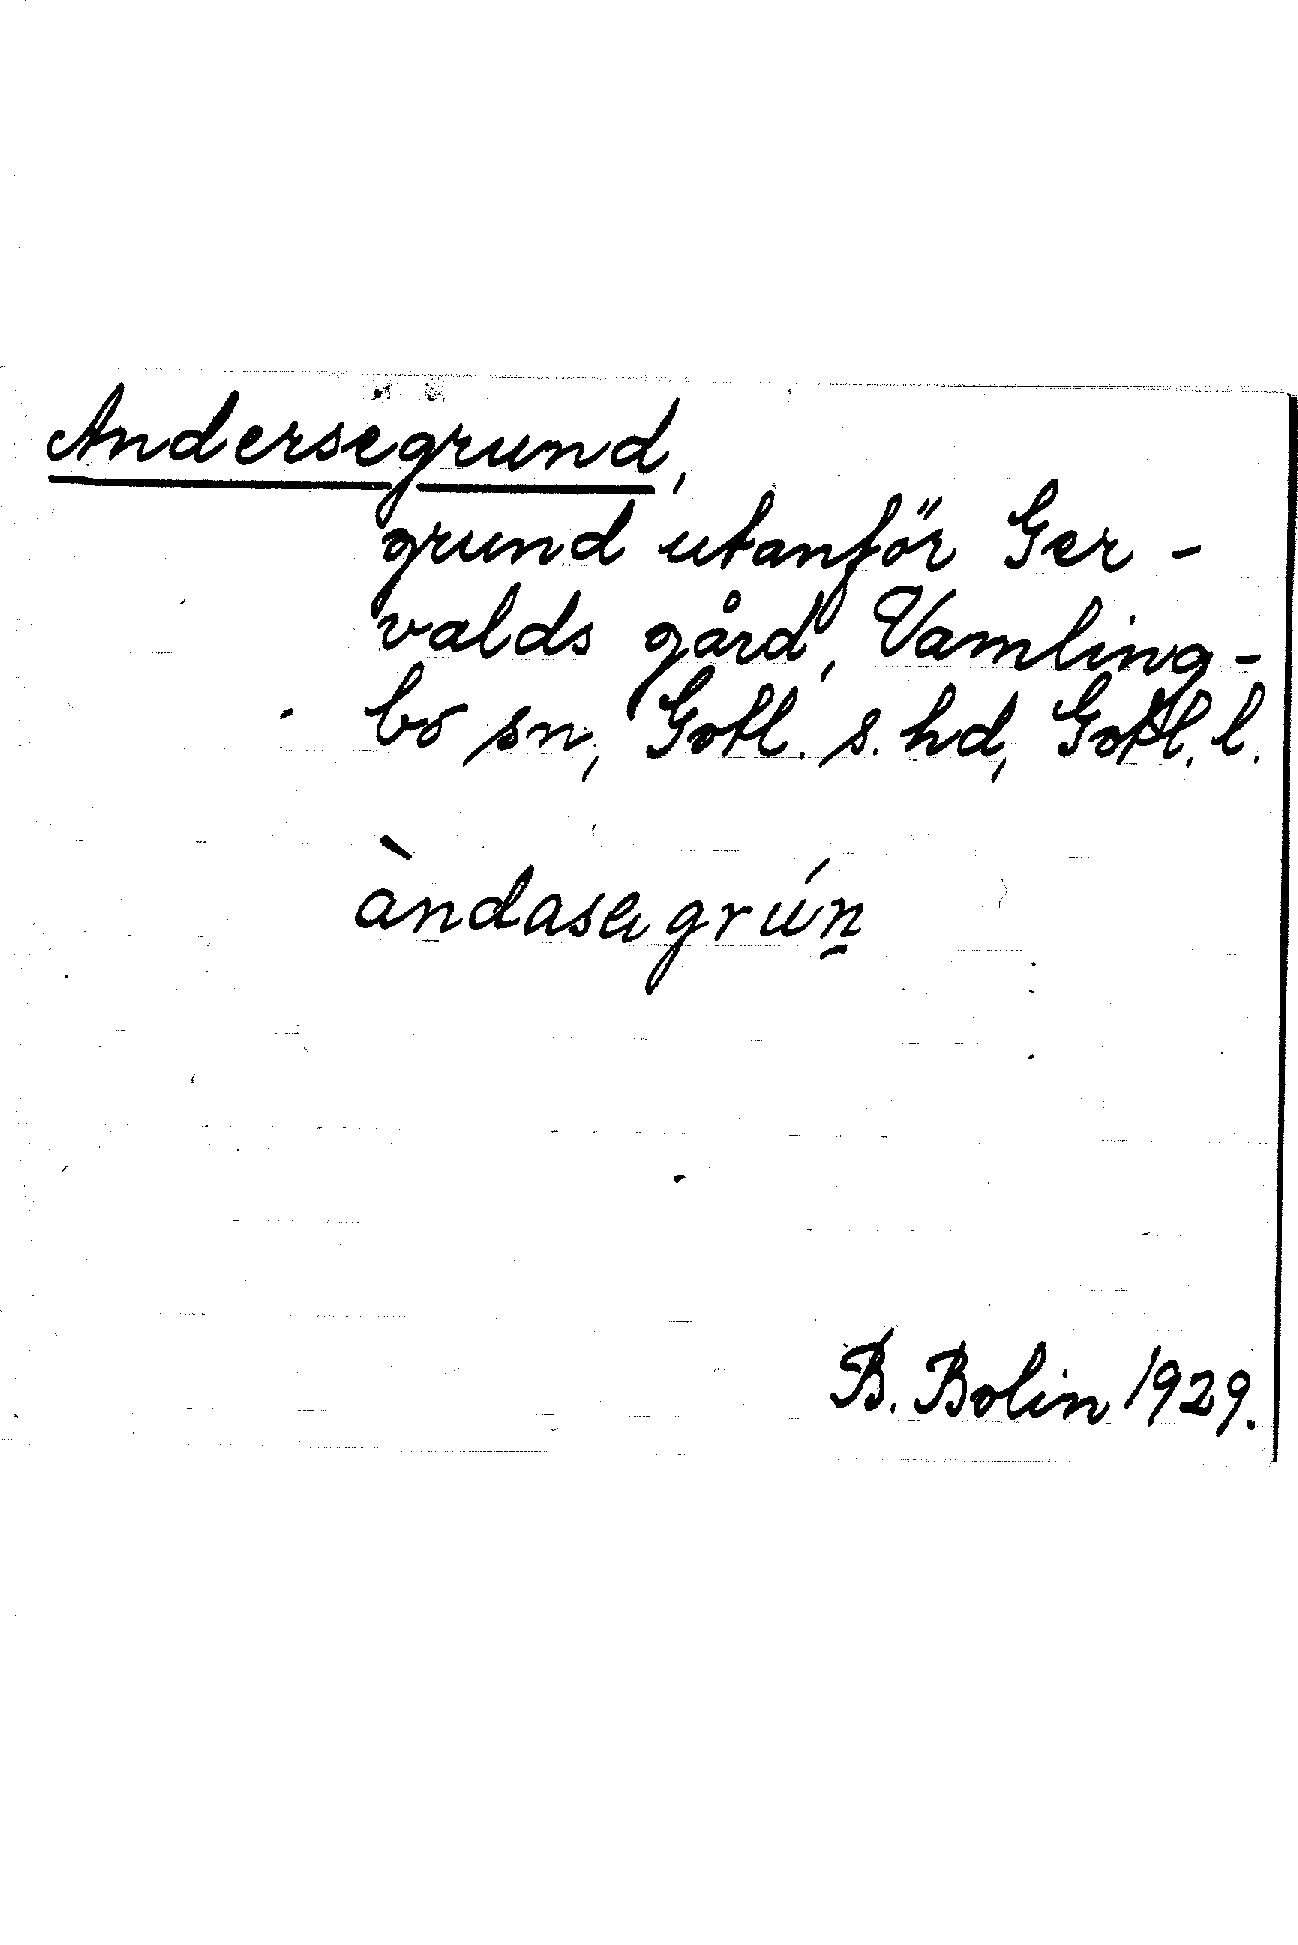 Andersegrund,
grund utanför Ger-
valds gård, Vamling-
bo sn, Gotl. s. hd, Gotl. l.
àndasegrún̲
B. Bolin 1929.